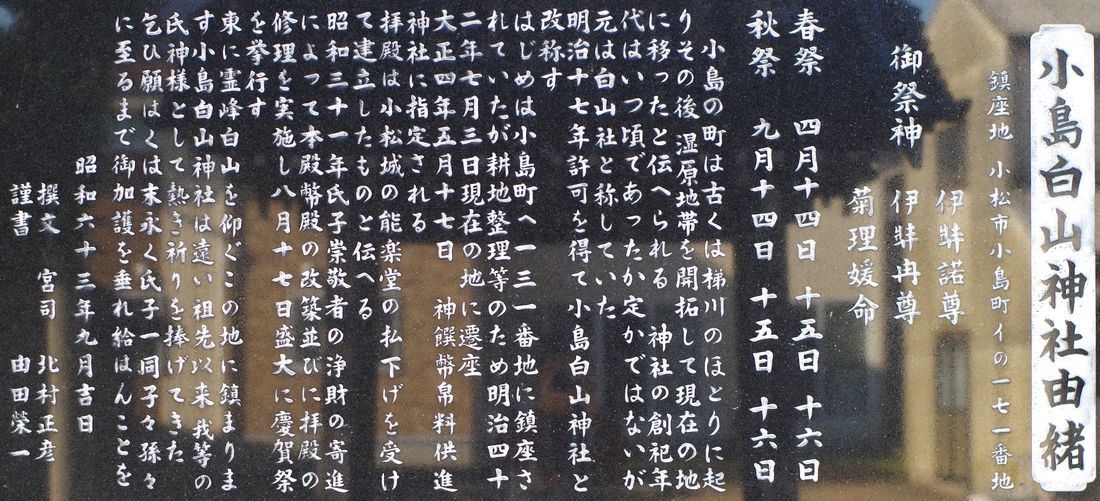 小島白山神社由緒
鎮座地 小松市小島町イの一七一番地
御祭神
伊弉諾尊
伊弉冉尊
菊理媛命
春祭 四月十四日 十五日 十六日
秋祭 九月十四日 十五日 十六日
小島の町は古くは梯川のほとりに起
りその後 湿原地帯を開拓して現在の地
に移ったと伝へられる 神社の創祀年
代はいつ頃であったか定かではないが
元は白山社と称していた
明治十七年許可を得て小島白山神社と
改称す
はじめは小島町ヘ一三一番地に鎮座さ
れていたが耕地整理等のため明治四十
二年七月三日現在の地に遷座
大正四年五月十七日 神饌幣帛料供進
神社に指定される
拝殿は小松城の能楽堂の払下げを受け
て建立したものと伝へる
昭和三十一年氏子崇敬者の浄財の寄進
によって本殿幣殿の改築並びに拝殿の
修理を実施し八月十七日盛大に慶賀祭
を挙行す
東に霊峰白山を仰ぐこの地に鎮まりま
す小島白山神社は遠い祖先以来我等の
氏神様として熱き祈りを捧げてきた
乞ひ願はくは末永く氏子一同子々孫々
に至るまで御加護を垂れ給はんことを
昭和六十三年九月吉日
撰文 宮司 北村正彦
謹書 由田榮一